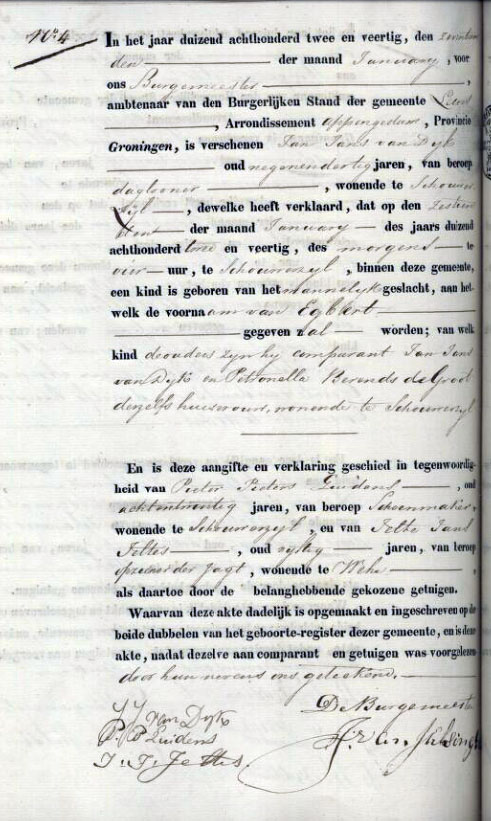 No 4
In het jaar duizend achthonderd twee en veertig, den zeventien
den der maand January, voor
ons Burgemeester,
ambtenaar van den Burgerlijken Stand der gemeente Leens
, Arrondissement Appingedam, Provincie
Groningen, is verschenen Jan Jans van Dijk
oud negenendertig jaren, van beroep
daglooner, wonende te Schouwer
zijl, dewelke heeft verklaard, dat op den zestien
den der maand January des jaars duizend
achthonderd twee en veertig, des morgens te
vier uur, te Schouwerzijl, binnen deze gemeente,
een kind is geboren van het mannelijk geslacht, aan het-
welk de voornaam van Egbert
gegeven zal worden; van welk
kind de ouders zijn hij comparant Jan Jans
van Dijk en Petronella Berends de Groot
deszelfs huisvrouw, wonende te Schouwerzijl
En is deze aangifte en verklaring geschied in tegenwoordig-
heid van Pieter Pieters Zuidens, oud
achtentwintig jaren, van beroep Schoenmaker,
wonende te Schouwerzijl, en van Jelte Jans
Jeltes, oud vijftig jaren, van beroep
opziener der jagt, wonende te Wehe,
als daartoe door de belanghebbende gekozene getuigen.
Waarvan deze akte dadelijk is opgemaakt en ingeschreven op de
beide dubbelen van het geboorte-register dezer gemeente, en is deze
akte, nadat dezelve aan comparant en getuigen was voorgelezen
door hun nevens ons geteekend.
De Burgemeester
J J van Dijk
P. P Zuidens
J. J. Jeltes.